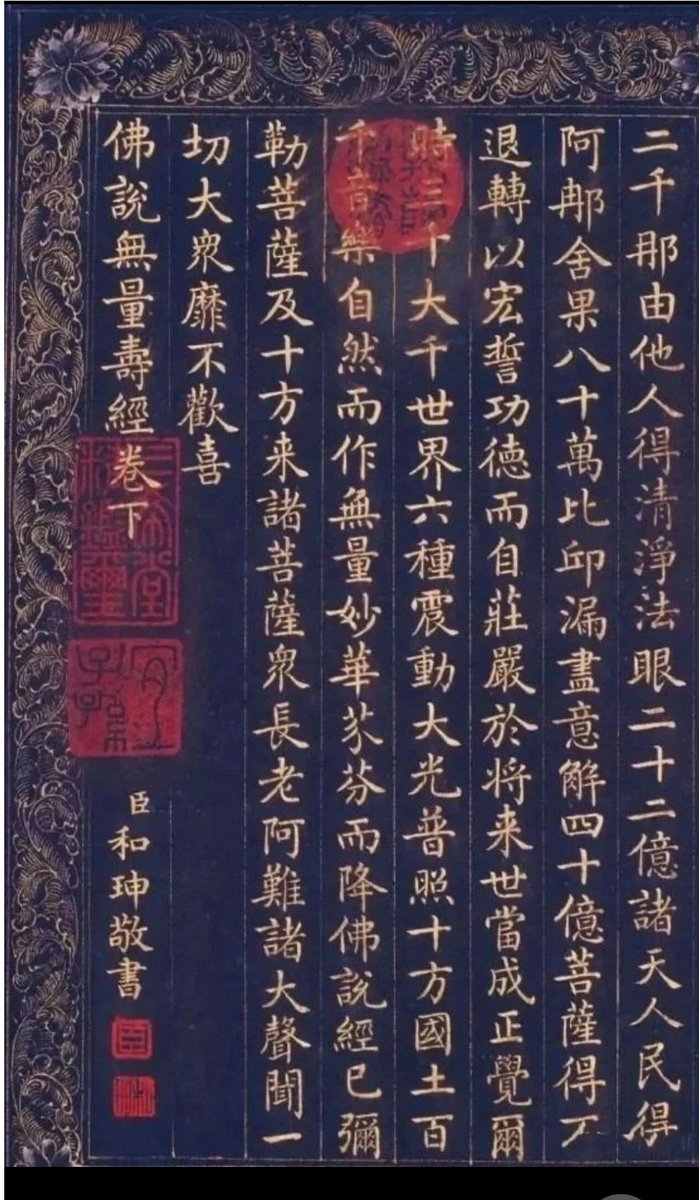 二千那由他人得清淨法眼二十二億諸天人民得
阿那舍果八十萬比邱漏盡意解四十億菩薩得不
退轉以宏誓功德而自莊嚴於将来世當成正覺爾
時三千大千世界六種震動大光普照十方國土百
千音樂自然而作無量妙華芬芬而降佛説經已彌
勒菩薩及十方来諸菩薩衆長老阿難諸大聲聞一
切大衆靡不歡喜
佛説無量壽經卷下
三希堂精鑑璽
宜子孫
臣和珅敬書
臣